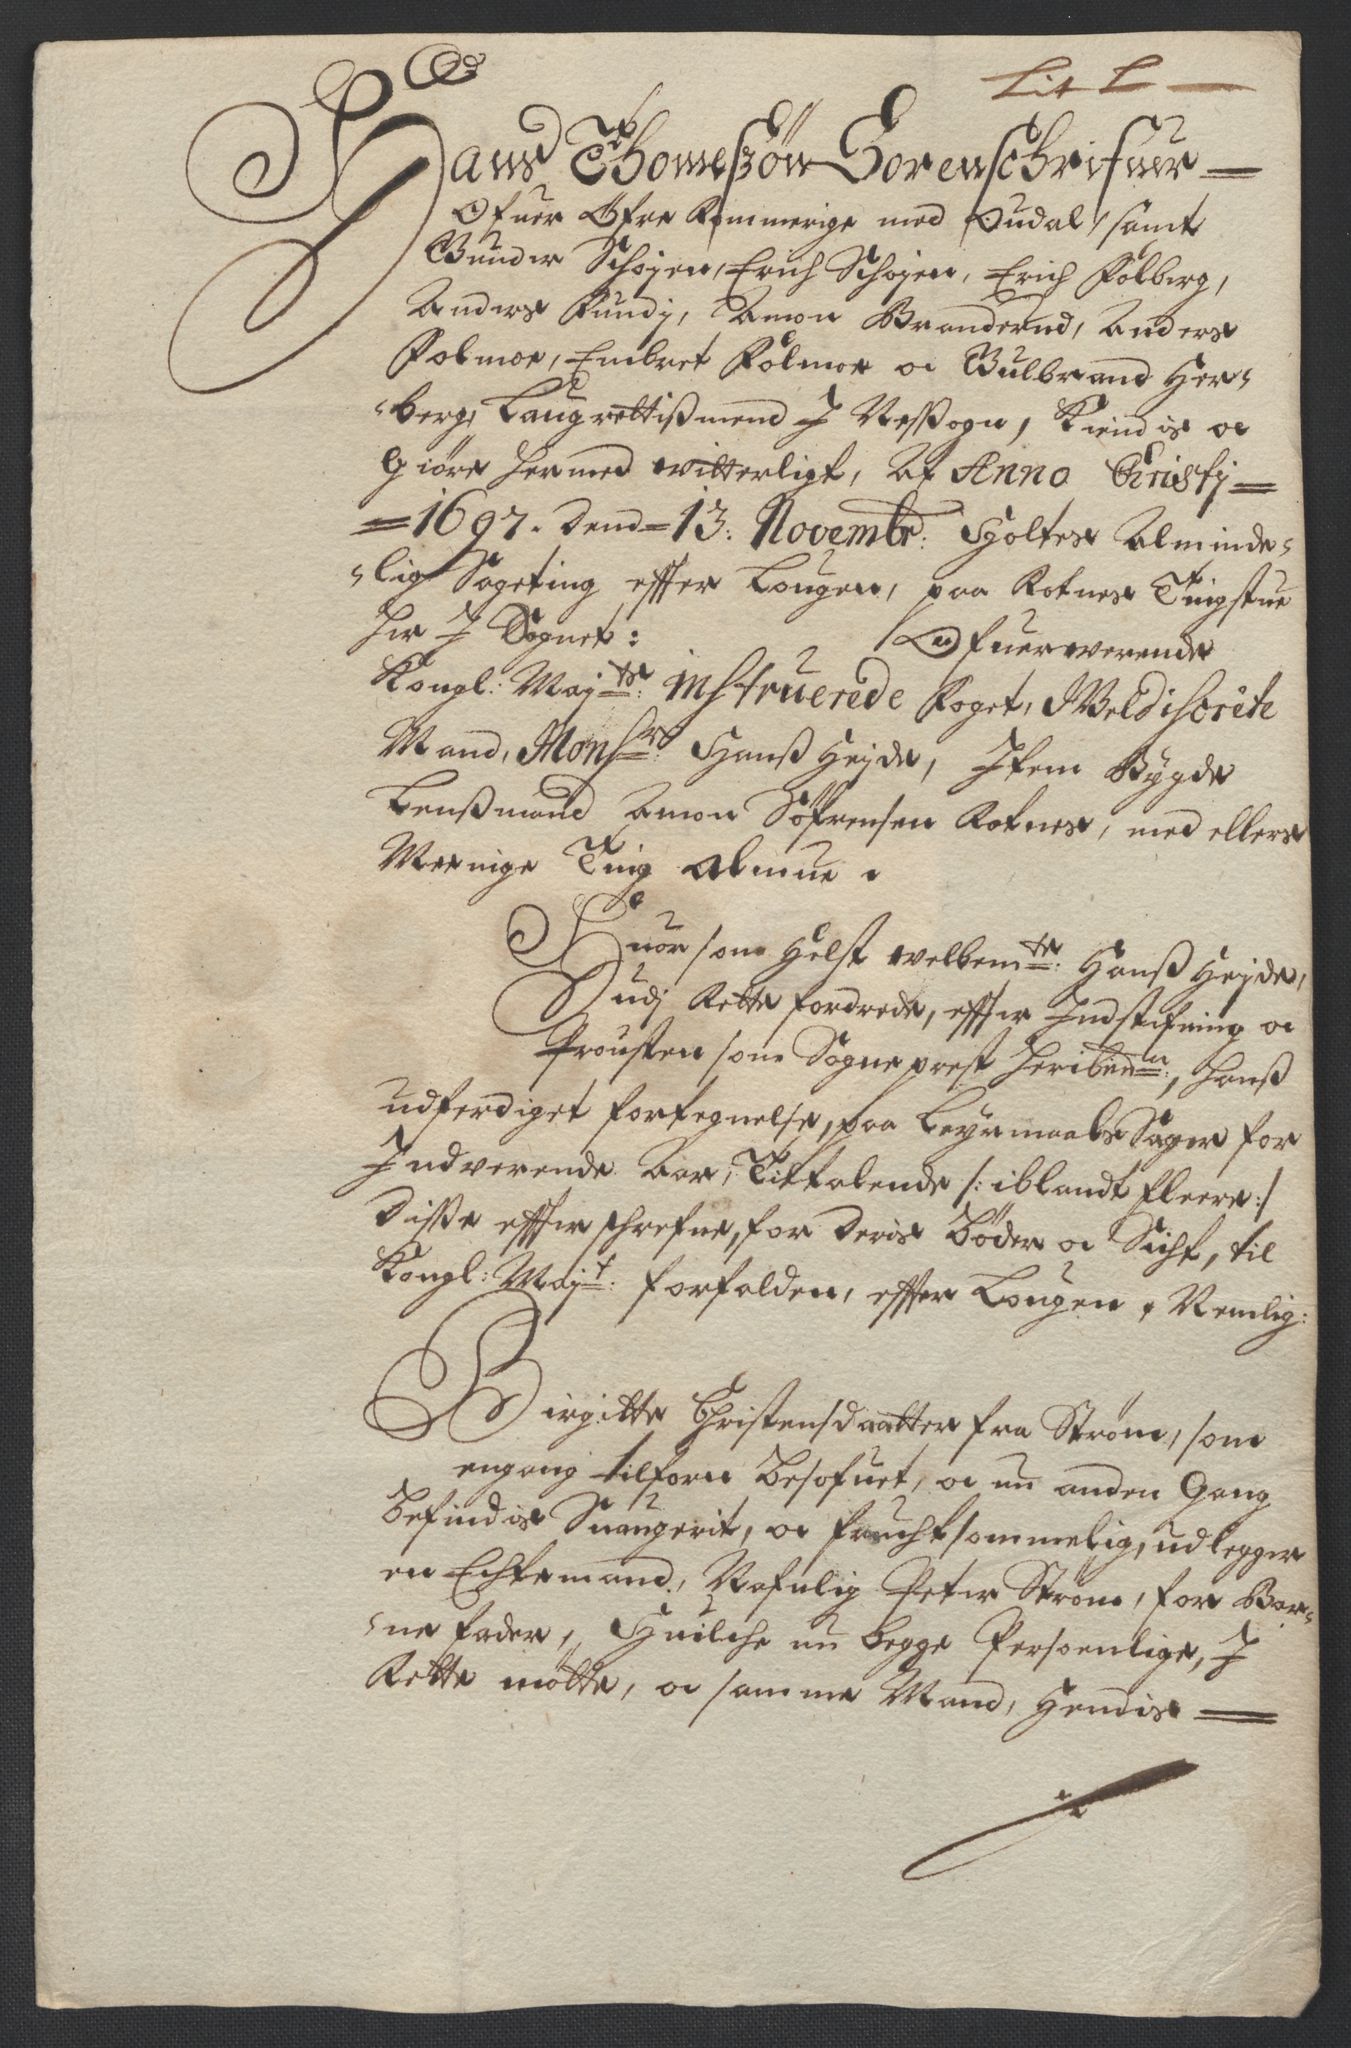 Lit L
Hans Thomeszön Sorenschrifuer
Ofuer Öfre Rommerige med Oudal, samt
Gunder Schojen, Erich Schojen, Erich Folberg,
Anders Sundj, Amon Branderud, Anders
Folmoe, Embret Folmoe oc Gulbrand Her-
-berg, Laugrettißmend J Neßsogn, Kiendis oc
Giöre hermed witterligt, At Anno Christj
1697. Dend 13: Novembr: Holtes Alminde-
-lig Sageting effter Lougen, paa Rotnes Tingstue
her J Sognet: Ofuerwerende
Kongl: Maj:ts: instruerede Foget, Weldiscrete
Mand, Mons:r Hanß Hejde, Jtem Bygde
Lenßmand Amon Söfrensen Rotnes, med ellers
Meenige Ting Almue.
Huor som Helst welbem:te Hanß Hejde,
Udj Rette fordrede, effter Jndstefning oc
Prousten som Sogneprest Heribid:m, hanß
udferdiget fortegnelse, paa Leyrmaals Sager for
Jndverende Aar, Tiltalende /: iblandt fleere:/
Disse effterschrefne, for Deris Böder oc Sicht, til
Kongl: Maj:t: forfalden, effter Lougen, Nemlig:
Birgitte Christensdaatter fra Ström, som
engang tilforn besofuet, oc nu anden Gang
befindis Suangerit, oc fruchtsommelig, udlegger
en Echtemand, Nafnlig Peter Ström, for Bar-
-ne fader, Huilche nu begge Persoenlige, J
Rette mötte, oc samme Mand, Hendis